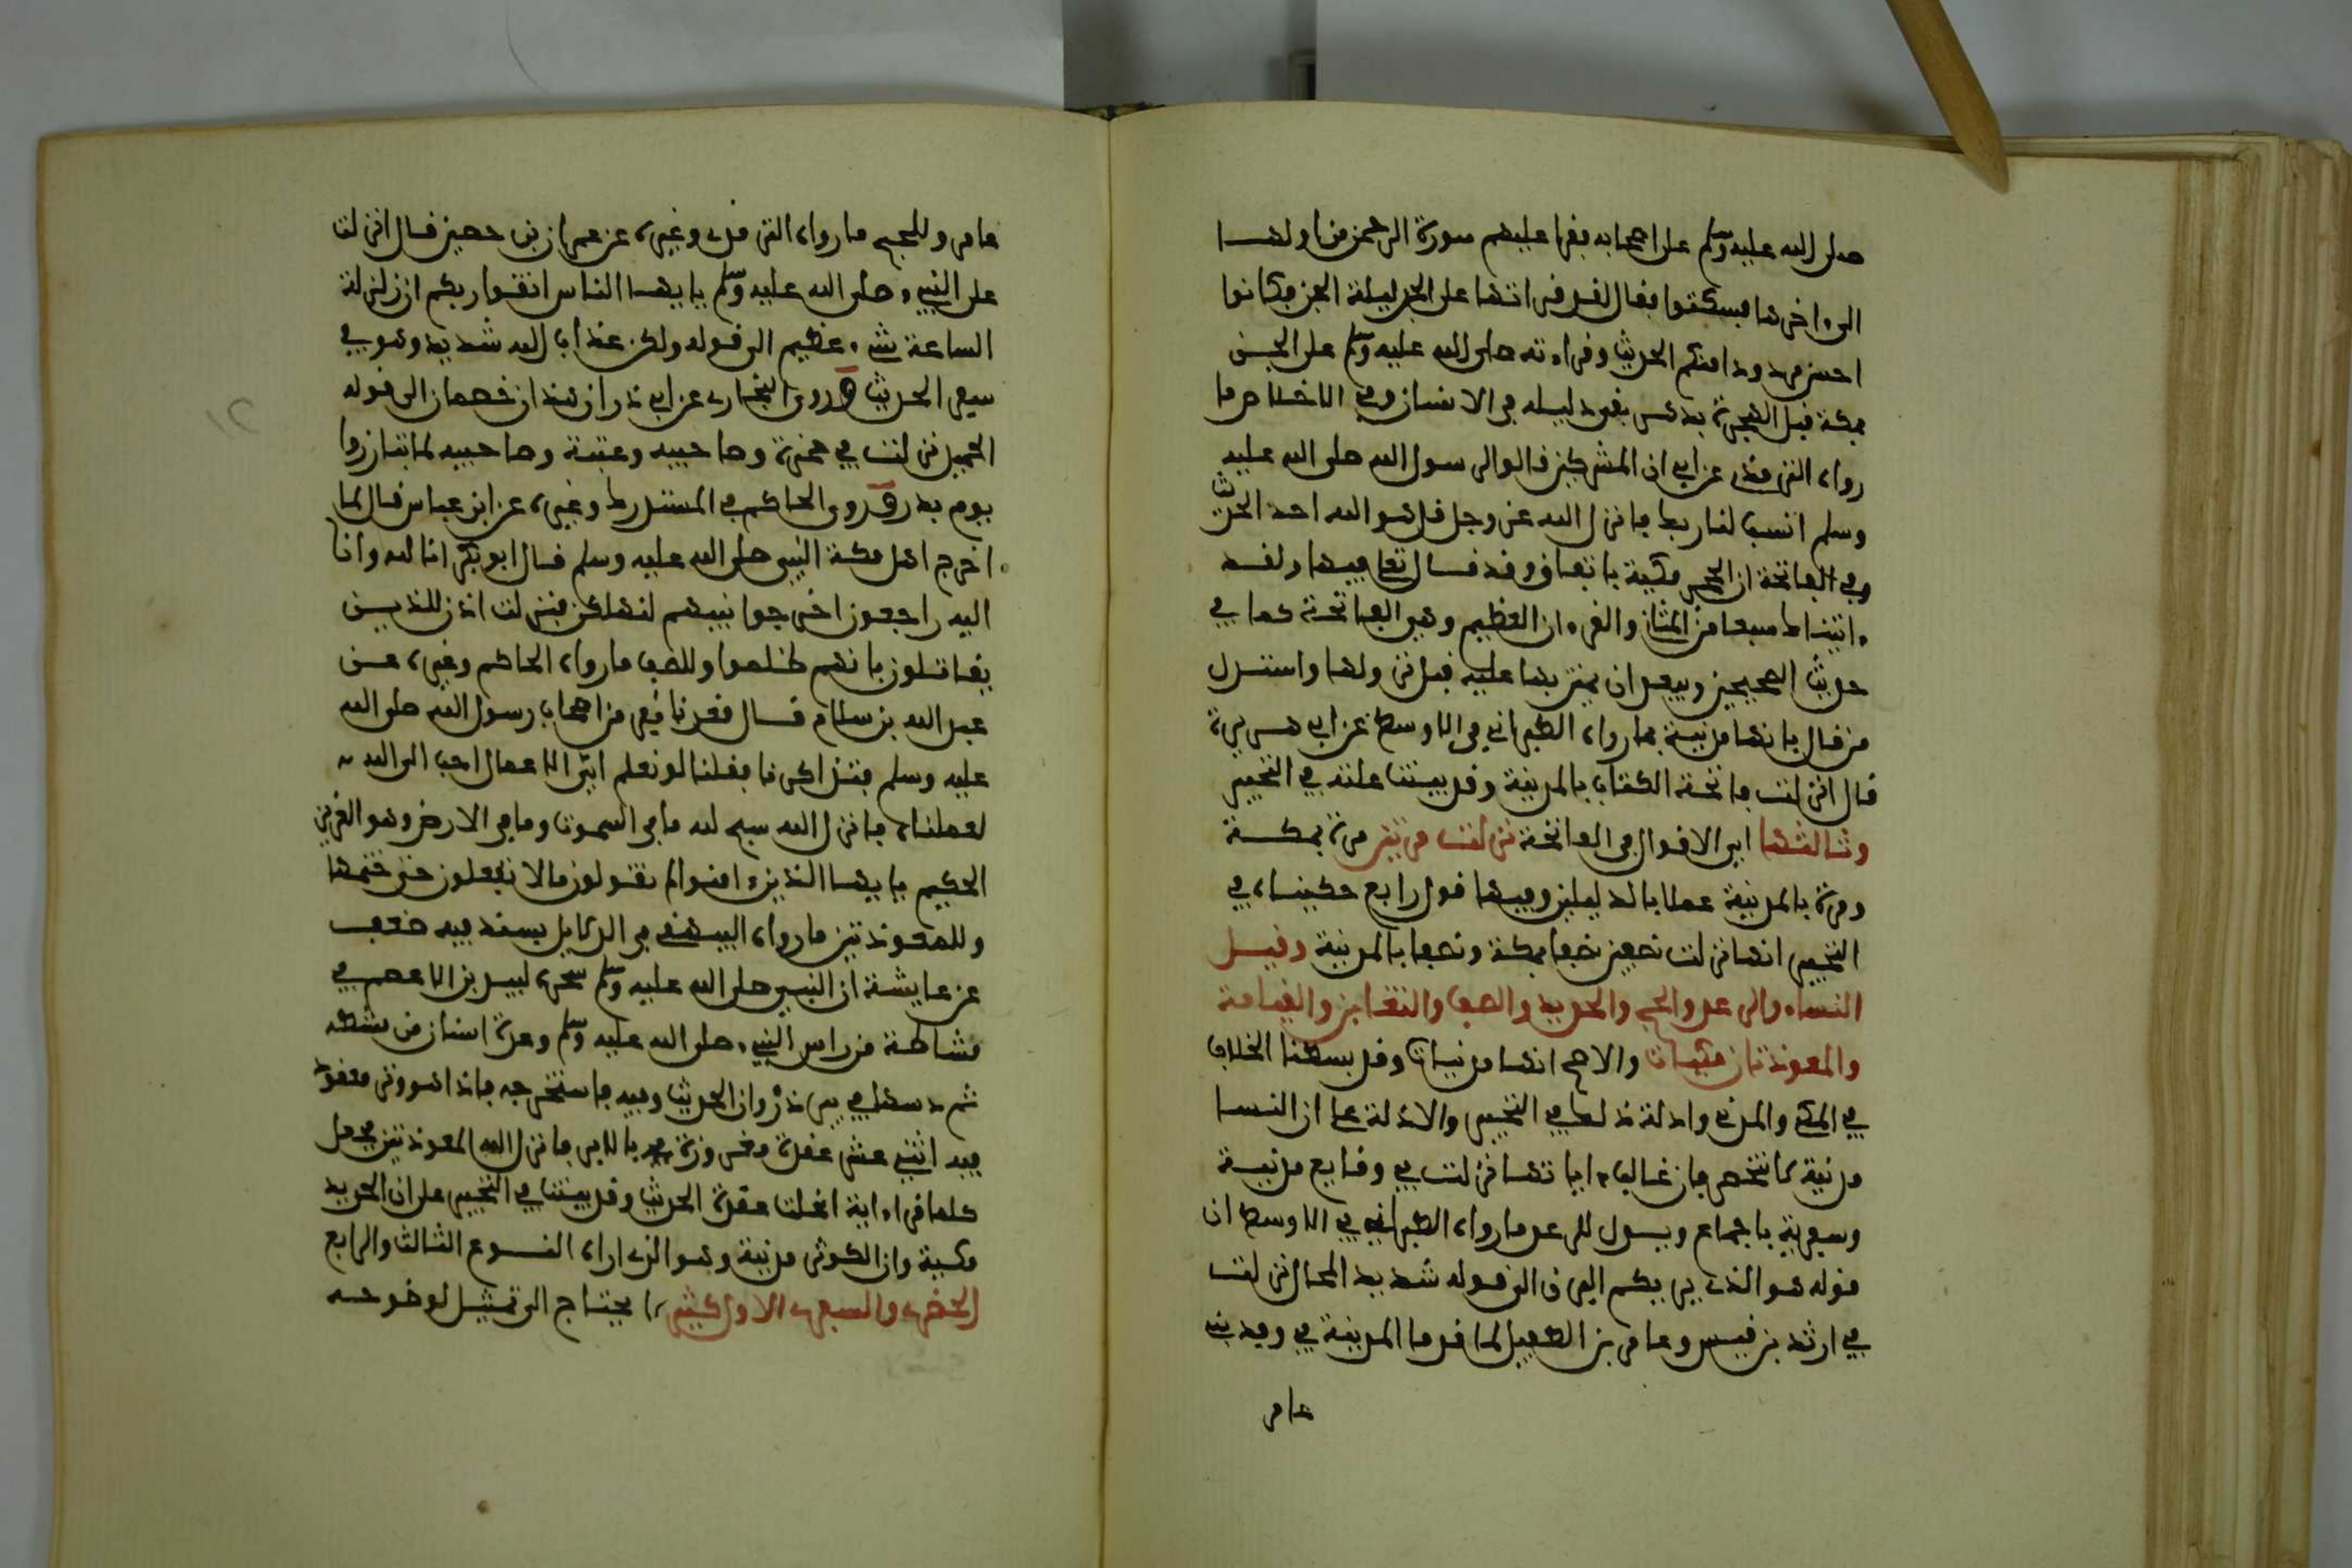 صلى الله عليه وسلم على اصحابه فقرا عليهم سورة الرحمن من اولها
الى ءاخرها فسكتوا فقال لقد قراتها على الجن ليلة الجن فكانوا
احسن مردودا منكم الحديث وقراءته صلى الله عليه وسلم على الجن
بمكة قبل الهجرة بدهر يعود ليله في الانسان وفي الاخلاص ما
رواه الترمذي عن ابي ان المشركين قالوا لرسول الله صلى الله عليه
وسلم انسب لنا ربك فانزل الله عز وجل قل هو الله احد الحديث
وفي الفاتحة ان الحجر مكية باتفاق وقد قال تعالى فيها ولقد
ءاتيناك سبعا من المثاني والقرءان العظيم وهي الفاتحة كما في
حديث الصحيحين ويبعد ان يمتن بها عليه قبل نزولها واستدل
من قال بانها مدنية بما رواه الطبراني في الاوسط عن ابي هريرة
قال انزلت فاتحة الكتاب بالمدينة وقد بينت علته في التحبير
وثالثها اي الاقوال في الفاتحة نزلت مرتين مرة بمكة
ومرة بالمدينة عملا بالدليلين وفيها قول رابع حكيناه في
التحبير انها نزلت نصفين نصفها بمكة ونصفها بالمدينة وقيل
النساء والرعد والحج والحديد والصف والتغابن والقيامة
والمعوذتان مكيات والاصح انها مدنيات وقد بسطنا الخلاف
في المكي والمدني وادلة ذلك في التحبير والادلة على ان النسا
مدنية لا تنحصر فان غالب ءاياتها نزلت في وقايع مدنية
وسفرية باجماع ويدل للرعد ما رواه الطبراني في الاوسط ان
قوله هو الذي يريكم البرق الى قوله شديد المحال نزلت
في اربد بن قيس وعامر بن الطفيل لما قدما المدينة في وفد بني
عامر
عامر وللحج ما رواه الترمذي وغيره عن عمران بن حصين قال انزلت
على النبيء صلى الله عليه وسلم يايها الناس اتقوا ربكم ان زلزلة
الساعة شيء عظيم الى قوله ولكن عذاب الله شديد وهو في
سفر الحديث وروى البخاري عن ابي ذر ان هذان خصمان الى قوله
الحميد نزلت في حمزة وصاحبيه وعتبة وصاحبيه لما تبارزوا
يوم بدر وروى الحاكم في المستدرك وغيره عن ابن عباس قال لما
اخرج اهل مكة النبي صلى الله عليه وسلم قال ابو بكر انا لله وانا
اليه راجعون اخرجوا نبيهم لنهلكن فنزلت اذن للذين
يقاتلون بانهم ظلموا وللصف ما رواه الحاكم وغيره عن
عبد الله بن سلام قال قعدنا نفر من اصحاب رسول الله صلى الله
عليه وسلم فتذاكرنا فقلنا لو نعلم اي الاعمال احب الى الله
لعملناه فانزل الله سبح لله ما في السموت وما في الارض وهو العزيز
الحكيم يايها الذين ءامنوا لم تقولون ما لا تفعلون حتى ختمها
وللمعوذتين ما رواه البيهقي في الدلايل بسند فيه ضعف
عن عايشة ان النبي صلى الله عليه وسلم سحره لبيد بن الاعصم في
مشاطة من راس النبيء صلى الله عليه وسلم وعدة اسنان من مشطه
ثم دسها في بير ذروان الحديث وفيه فاستخرجه فاذا هو وتر معقود
فيه اثني عشر عقدة مغروزة بالابر فانزل الله المعوذتين فجعل
كلما قرا ءاية انحلت عقدة الحديث وقد بينت في التحبير على ان الحديد
مكية وان الكوثر مدنية وهو الذي اراه النوع الثالث والرابع
الحضري والسفري الاول كثير لا يحتاج الى تمثيل لوضوحه